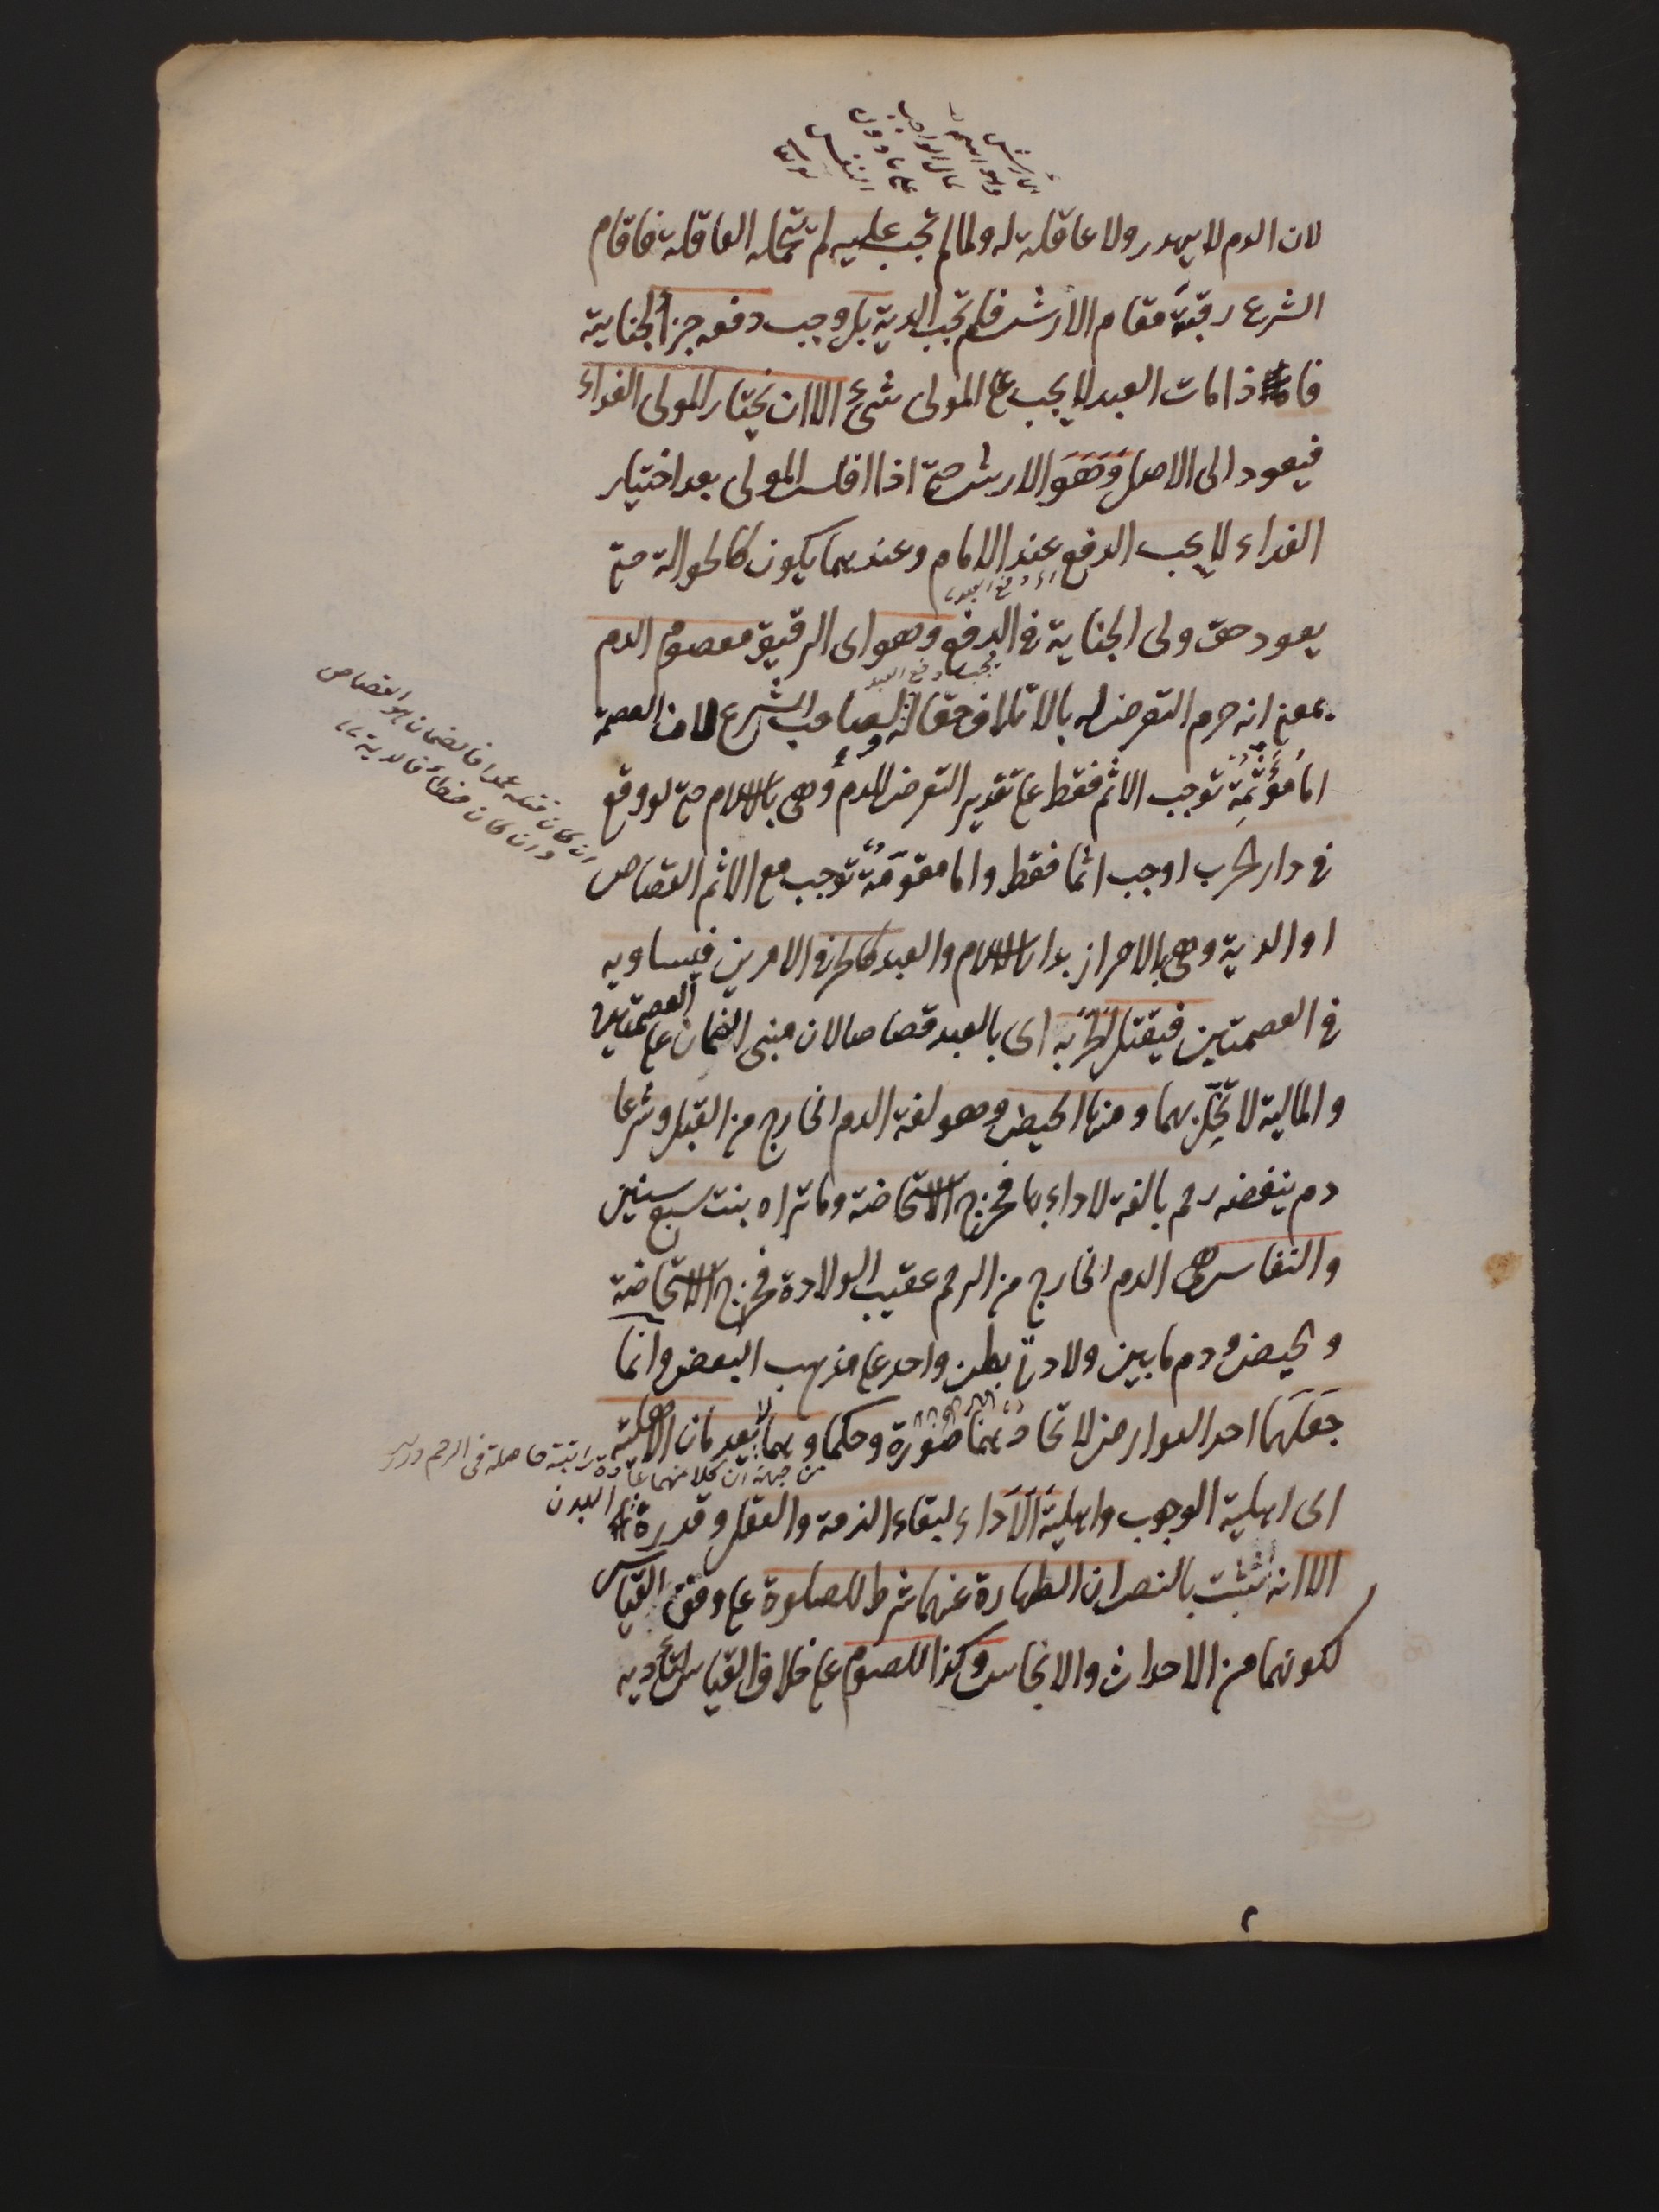 الارش
وهو اسم
للمال الواجب
على ما دون
النفس
لان الدم لا يهدر ولا عاقلة له ولما لم تجب عليه لم تتحمله العاقلة فاقام
الشرع رقبته مقام الارش فلم تجب الدية بل وجب دفعه جزاء الجناية
فاذا مات العبد لا يجب على المولى شئ الا ان يختار المولى الفداء
فيعود الى الاصل وهو الارش حتى اذا افلس المولى بعد اختيار
الفداء لا يجب الدفع عند الامام وعندهما يكون كالحوالة حتى
اي دفع العبد
يعود حق ولى الجناية في الدفع وهو اى الرقيق معصوم الدم
يجب دفع العبد
بمعنى انه حرم التعرض له بالاتلاف حقا له ولصاحب الشرع لان العصمة
اما مؤثمة توجب الاثم فقط على تقدير التعرض للدم وهى بالاسلام حتى لو وقع
في دار الحرب اوجب اثما فقط واما مقومة توجب مع الاثم القصاص
ان كان قتله عمدا فالضمان هو القصاص
وان كان خطأ فالدية
او الدية وهى بالاحراز بدار الاسلام والعبد كالحر في الامرين فيساويه
في العصمتين فيقتل الحر به اى بالعبد قصاصا لان مبنى الضمان على العصمتين
والمالية لا تخل بهما ومنها الحيض وهو لغة الدم الخارج من القبل وشرعا
دم ينفضه رحم بالغة لا داء بها فخرج الاستحاضة وما تراه بنت سبع سنين
والنفاس هى الدم الخارج من الرحم عقيب الولادة فخرج الاستحاضة
والحيض ودم ما بين ولادتى بطن واحد على مذهب البعض وانما
جعلهما احد العوارض لاتحادهما صورة وحكما وهما لا يعدمان الاهلية
من جهة ان كلا منهما عادة راتبة حاصلة في الرحم
اى اهلية الوجوب واهلية الاداء لبقاء الذمة والعقل وقدرة البدن
الا انه ثبت بالنص ان الطهارة عنهما شرط للصلوة على وفق القياس
لكونهما من الاحداث والانجاس وكذا للصوم على خلاف القياس لتأديه